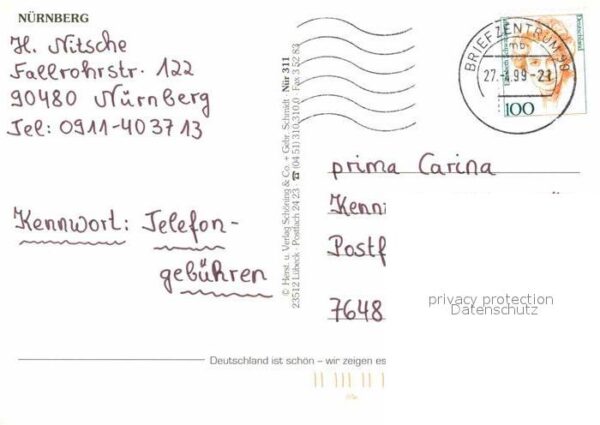 NÜRNBERG
H. Nitsche
Fallrohrstr. 122
90480 Nürnberg
Tel: 0911-403713
Kennwort: Telefon-
gebühren
© Herst. u. Verlag Schöning & Co. + Gebr. Schmidt Nür 311
23512 Lübeck · Postfach 24 23 ☎ (04 51) 310 310,0 · Fax 3 52 83
BRIEFZENTRUM 90
mb
27.-4.99-21
Deutschland
100
prima Carina
Kenn
Postf
7648
privacy protection
Datenschutz
Deutschland ist schön – wir zeigen es